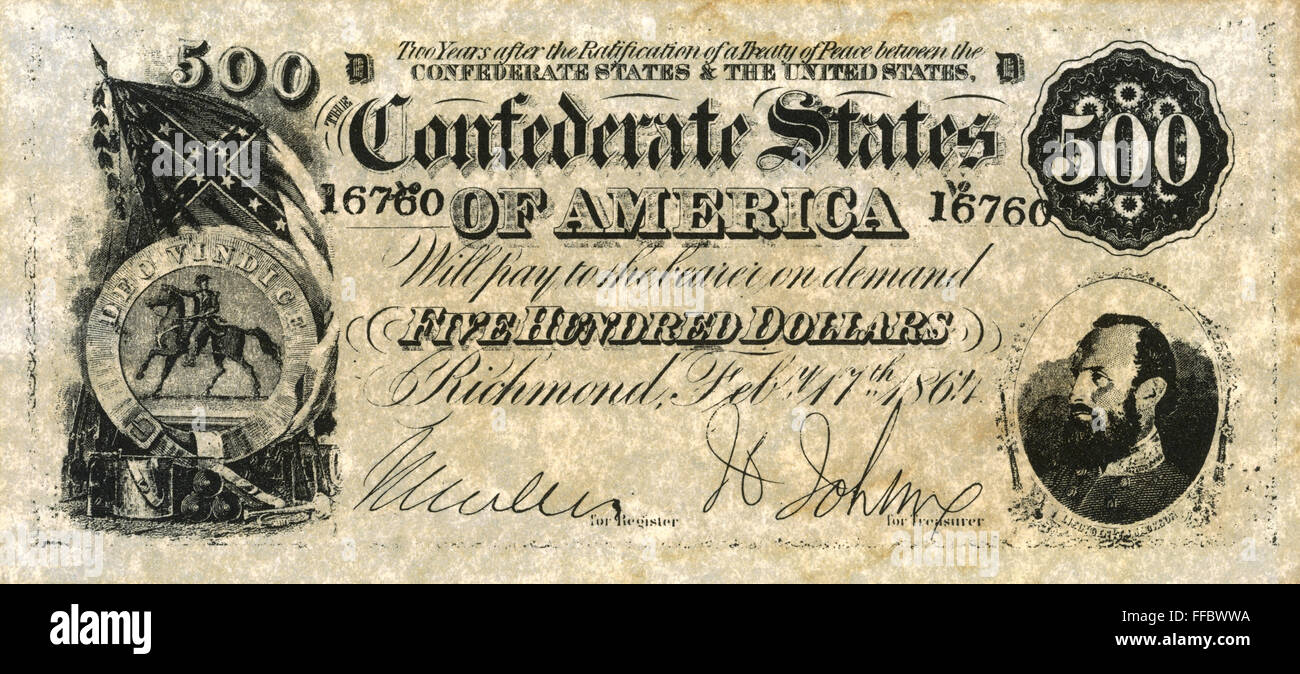 500 D Two Years after the Ratification of a Treaty of Peace between the D
CONFEDERATE STATES & THE UNITED STATES,
THE Confederate States 500
16760 OF AMERICA 16760
Will pay to the bearer on demand
FIVE HUNDRED DOLLARS
DEO VINDICE
Richmond, Feby. 17th 1864
for Register for Treasurer
alamy
alamy
alamy
alamy stock photo
FFBWWA
www.alamy.com